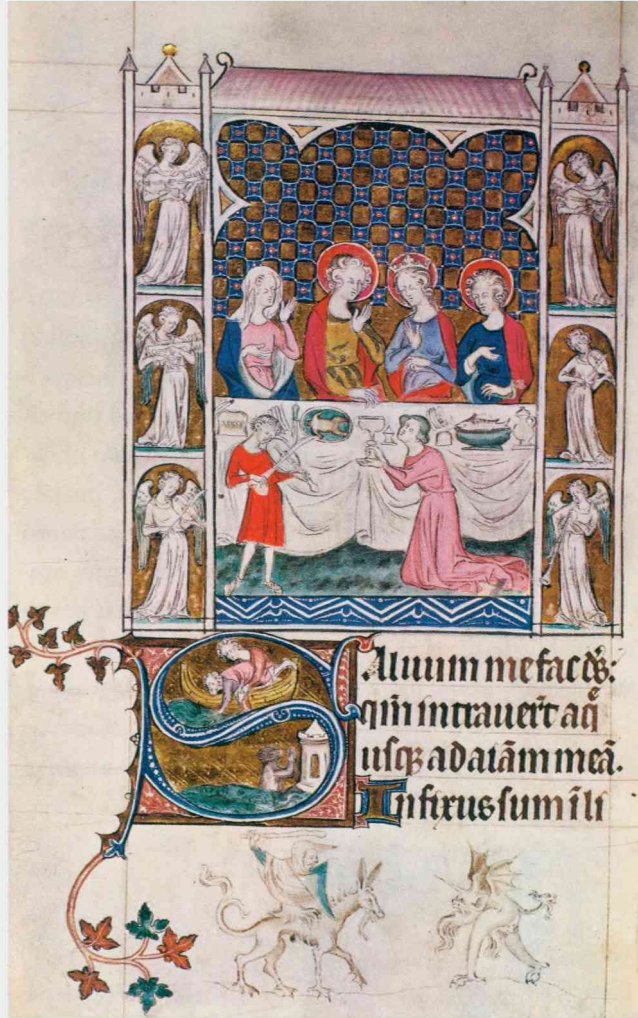 SAluum me fac ds̄:
qm̄ intrauer̄t aqͤ
usqꝫ ad aīam meā.
Infixus sum ī li